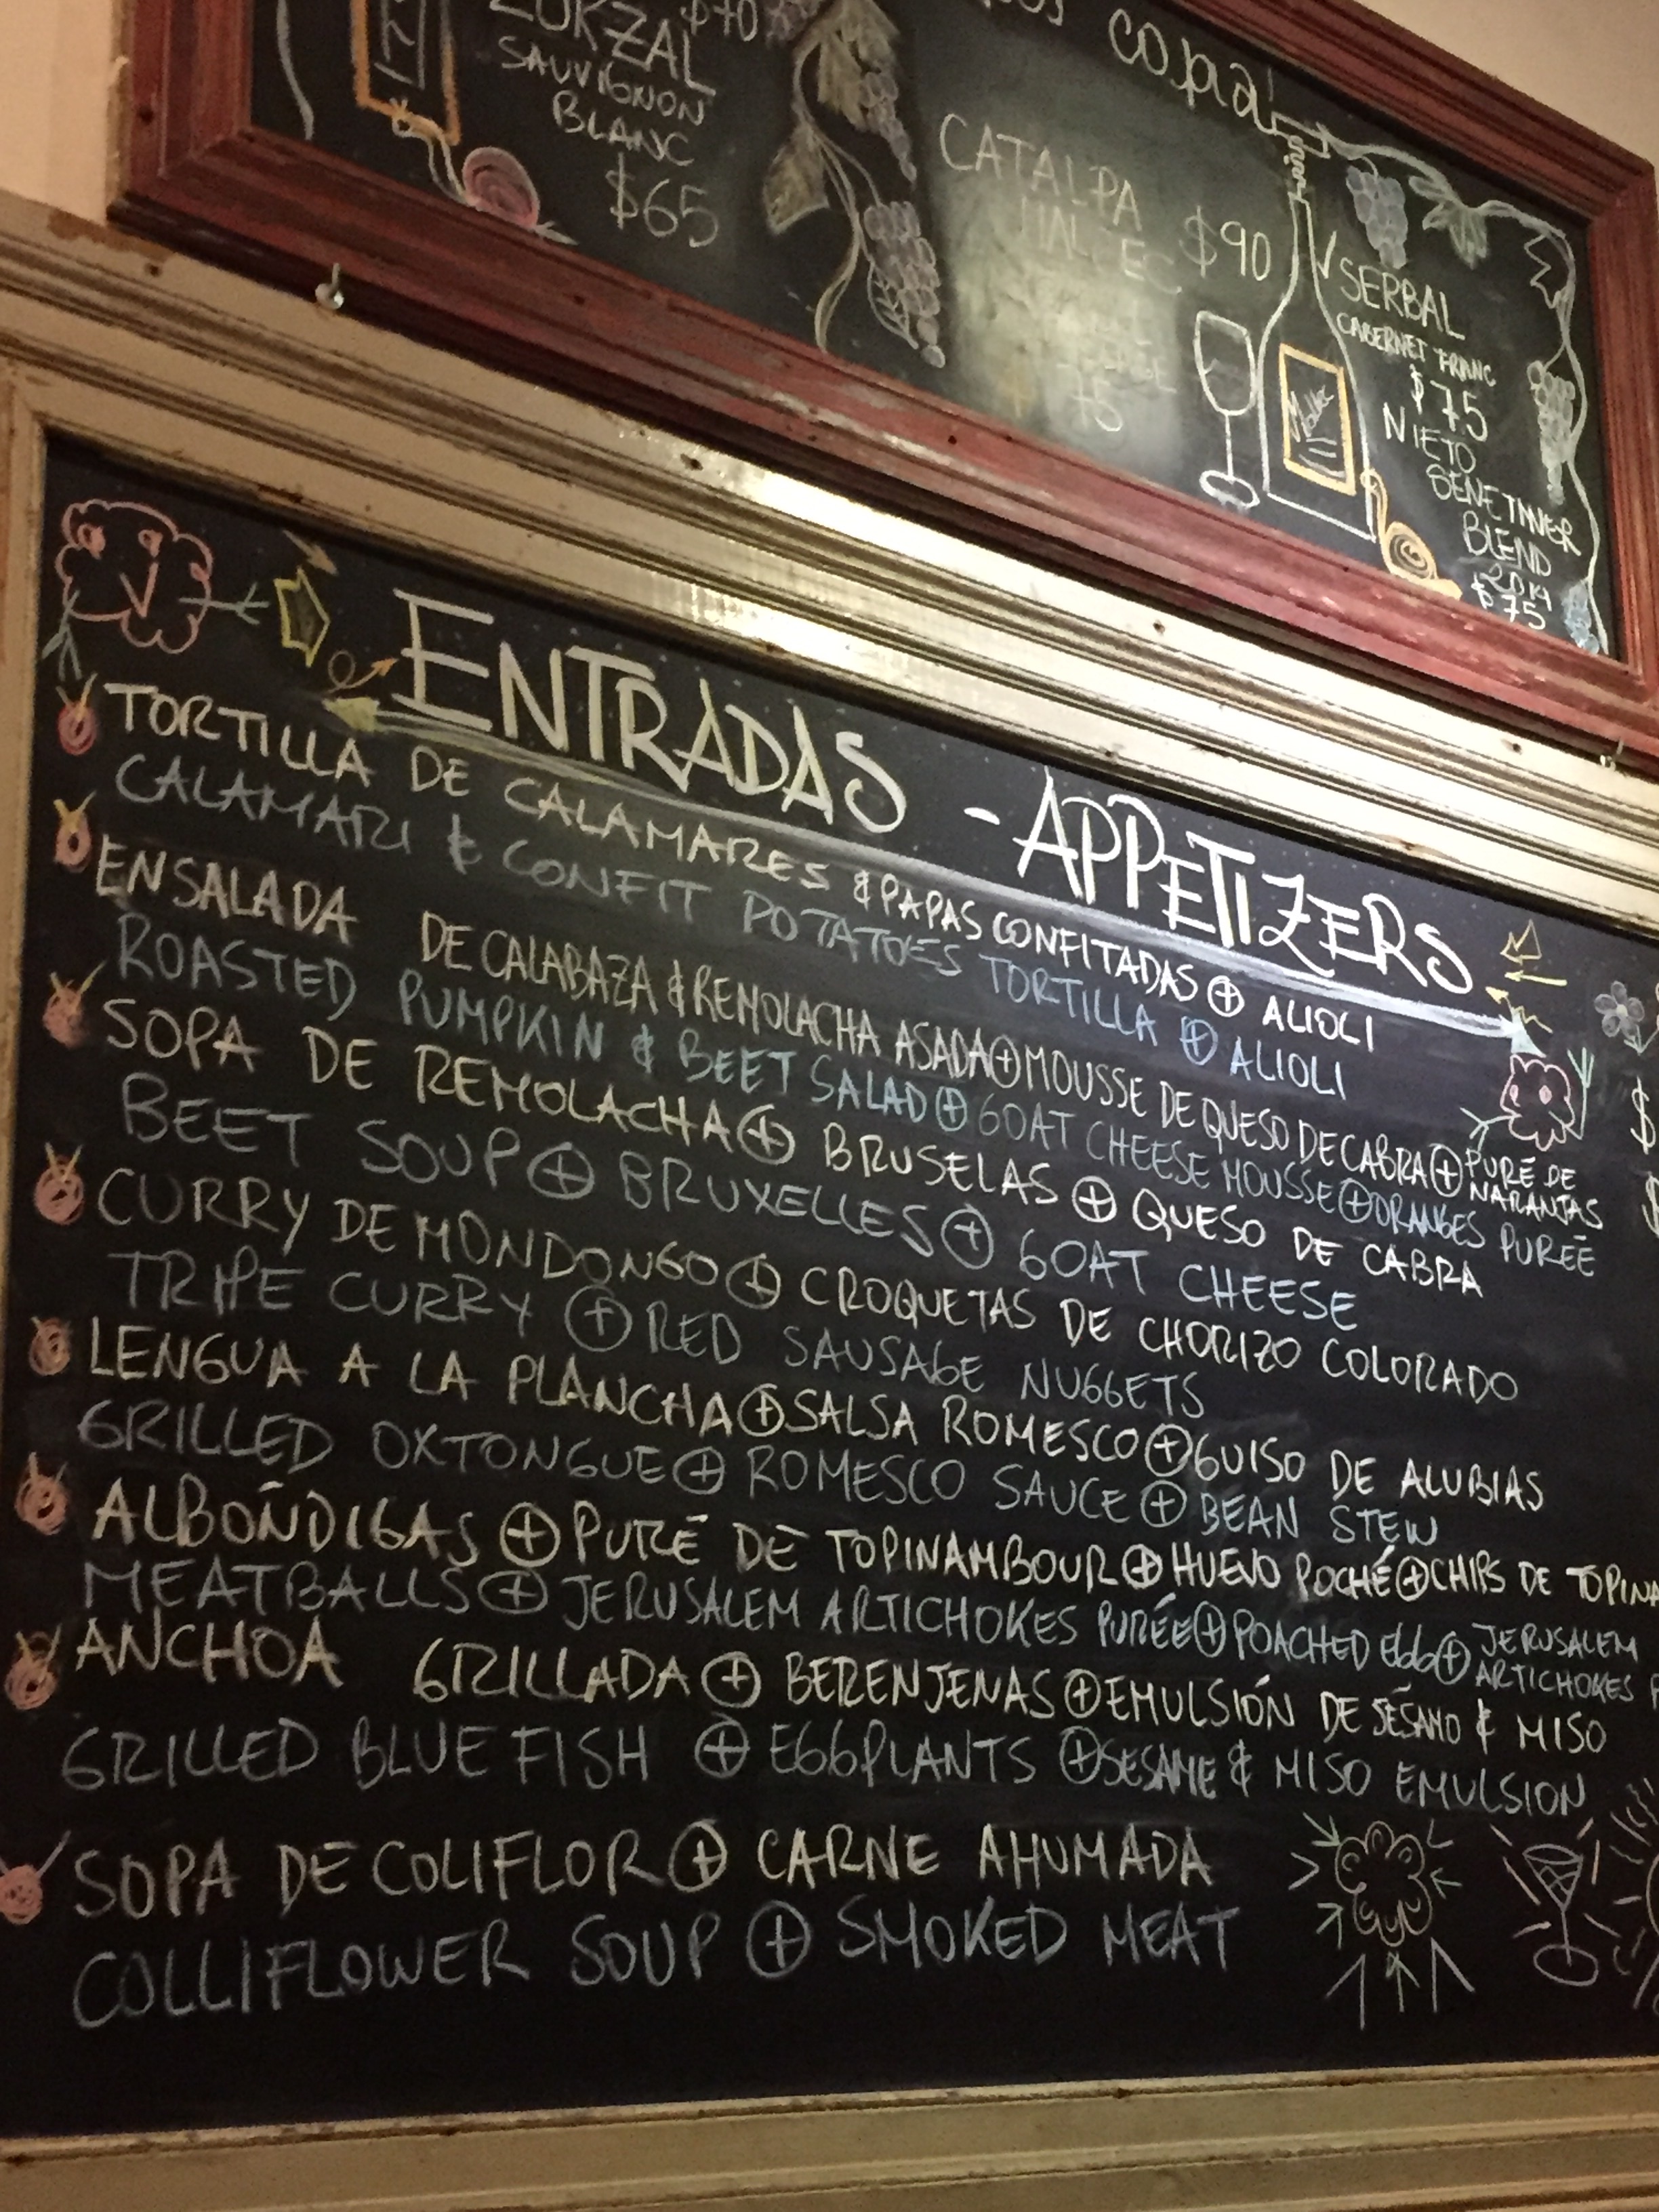 ZORZAL $70
SAUVIGNON
BLANC
$65
copa!
CATALPA
$90
75
SERBAL
CABERNET FRANC
$75
NIETO
SENETINNER
BLEND
2014
$75
ENTRADAS - APPETIZERS
TORTILLA DE CALAMARES & PAPAS CONFITADAS ⊕ ALIOLI
CALAMARI & CONFIT POTATOES TORTILLA ⊕ ALIOLI
ENSALADA DE CALABAZA & REMOLACHA ASADA ⊕ MOUSSE DE QUESO DE CABRA ⊕ PURÉ DE NARANJAS
ROASTED PUMPKIN & BEET SALAD ⊕ GOAT CHEESE MOUSSE ⊕ ORANGES PUREÉ
SOPA DE REMOLACHA ⊕ BRUSELAS ⊕ QUESO DE CABRA
BEET SOUP ⊕ BRUXELLES ⊕ GOAT CHEESE
CURRY DE MONDONGO ⊕ CROQUETAS DE CHORIZO COLORADO
TRIPE CURRY ⊕ RED SAUSAGE NUGGETS
LENGUA A LA PLANCHA ⊕ SALSA ROMESCO ⊕ GUISO DE ALUBIAS
GRILLED OXTONGUE ⊕ ROMESCO SAUCE ⊕ BEAN STEW
ALBOÑDIGAS ⊕ PURÉ DE TOPINAMBOUR ⊕ HUEVO POCHÉ ⊕ CHIPS DE TOPINA
MEATBALLS ⊕ JERUSALEM ARTICHOKES PURÉE ⊕ POACHED EGG ⊕ JERUSALEM ARTICHOKES
ANCHOA GRILLADA ⊕ BERENJENAS ⊕ EMULSIÓN DE SÉSAMO & MISO
GRILLED BLUE FISH ⊕ EGGPLANTS ⊕ SESAME & MISO EMULSION
SOPA DE COLIFLOR ⊕ CARNE AHUMADA
COLLIFLOWER SOUP ⊕ SMOKED MEAT